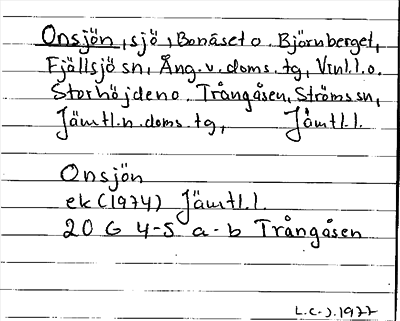 Onsjön, sjö, Bonäset o. Björnberget,
Fjällsjö sn, Ång.v.doms.tg, Vtnl.l.o.
Storhöjden o. Trångåsen, Ströms sn,
Jämtl.n.doms.tg, Jämtl.l.
Onsjön
ek (1974) Jämtl.l.
20 G 4-5 a-b Trångåsen
L.C-J. 1977